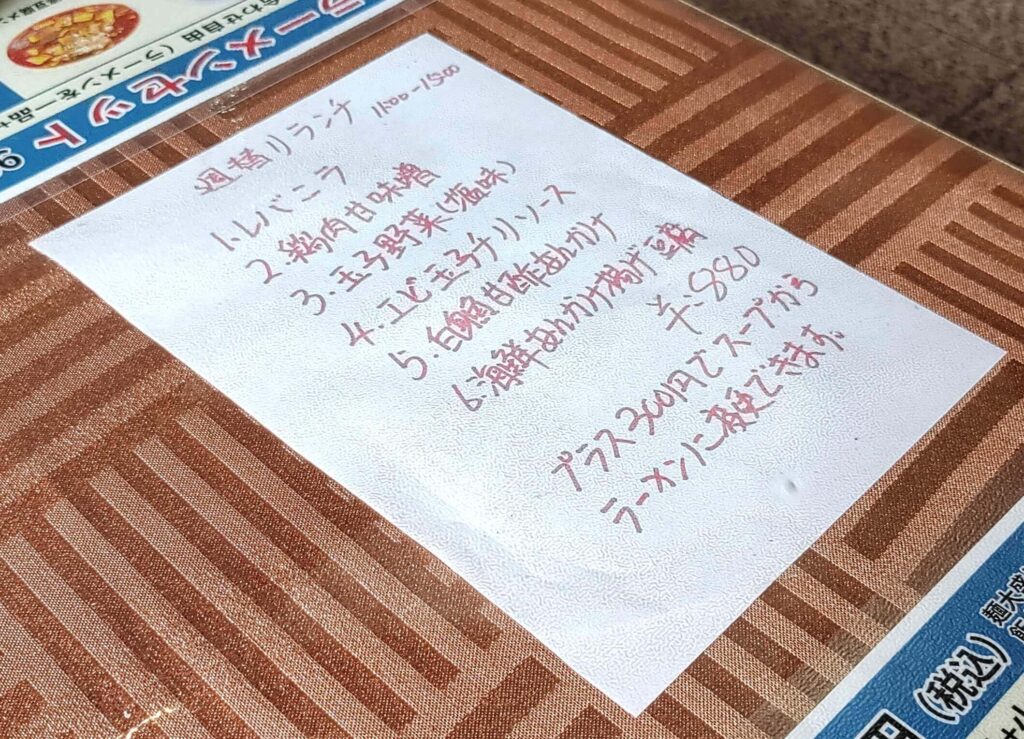 ラーメンセット
合わせ自由(ラーメンを一品
週替りランチ 11:00-15:00
1.レバニラ
2.鶏肉甘味噌
3.玉子野菜(塩味)
4.エビ玉子チリソース
5.白鯛甘酢あんかけ
6.海鮮あんかけ揚げ豆腐
¥.880
プラス300円でスープから
ラーメンに変更できます。
円(税込)
麺大盛
飯